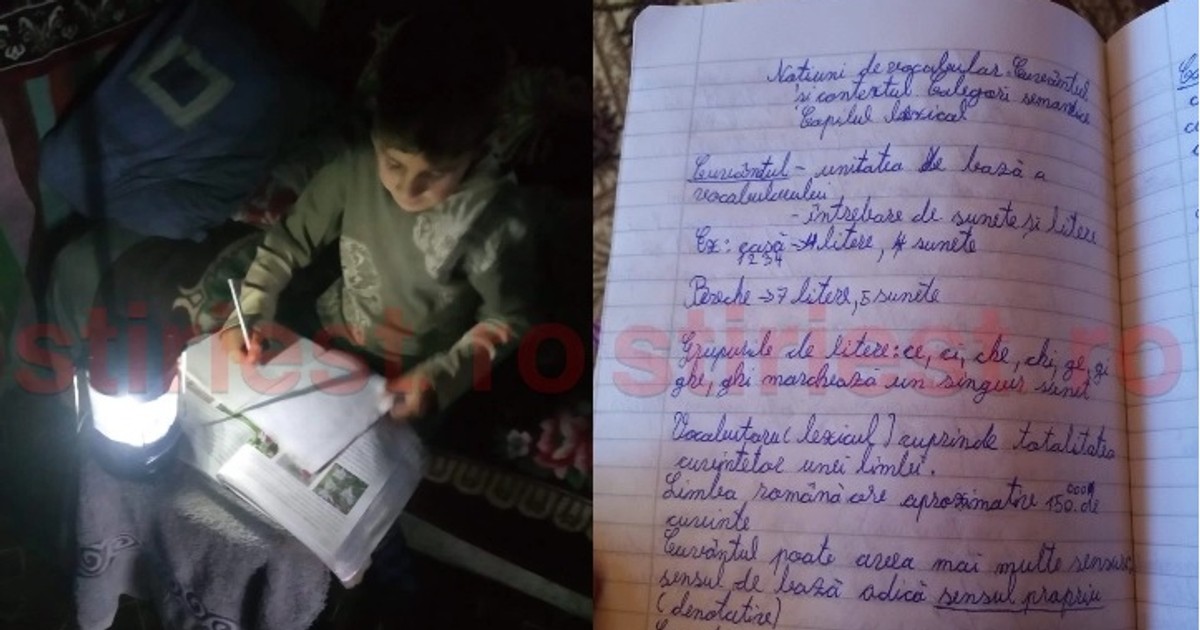 Natiuni de vocabular. Cuvântul
si contextul Categori semantice
Capilul lexical
Cuvântul - unitatia de bază a
vocabularului
- întrebare de sunete și litere
Ex: casă -> 4 litere, 4 sunete
1 2 3 4
Bereche -> 7 litere, 5 sunete
Grupurile de litere: ce, ci, che, chi, ge, gi
ghe, ghi marchează un singur sunet
Vocabularu (lexicul) cuprinde totalitatea
cuvintelor unei limbi.
Limba română are aproximative 150.000 de
cuvinte
Cuvântul poate avea mai multe sensuri,
sensul de bază adică sensul propriu
(denotative)
stiriest.ro stiriest.ro